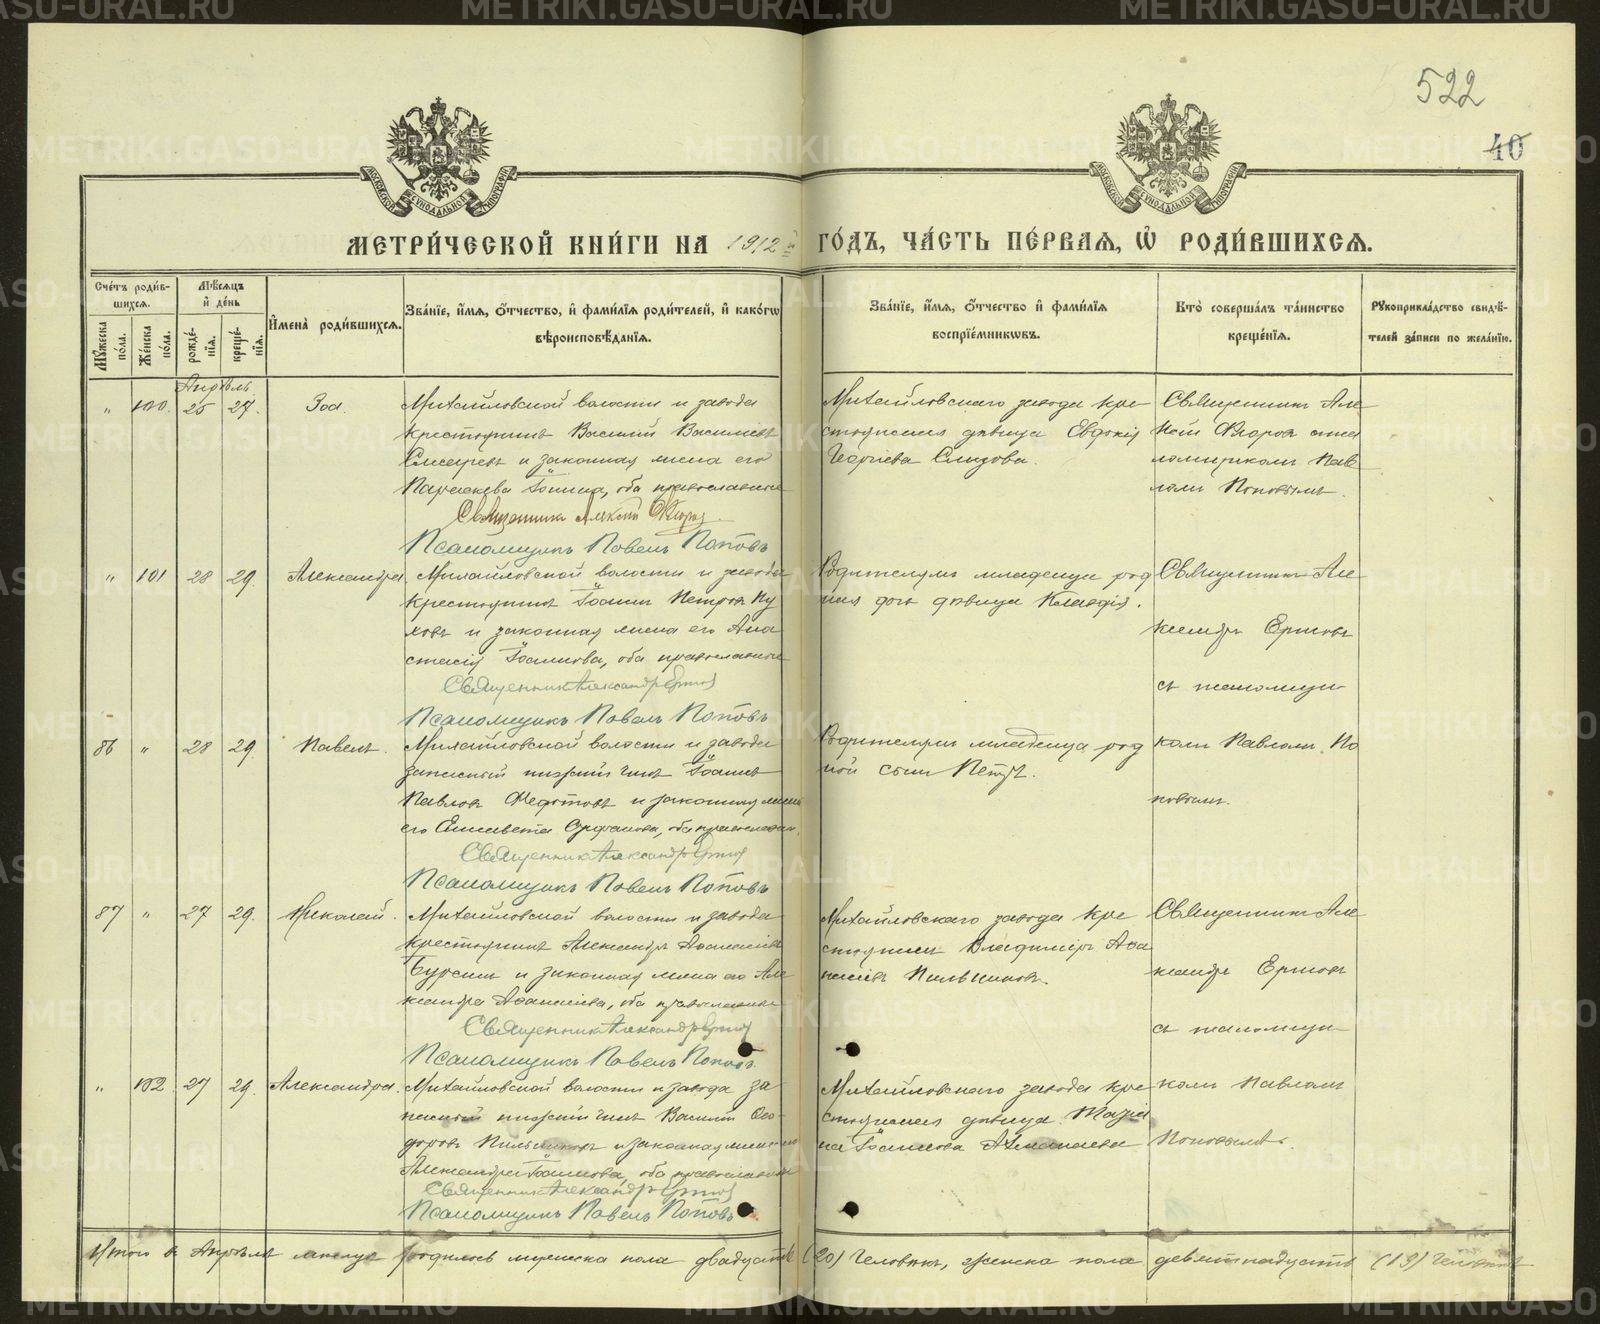 522
40
МОСКОВСКОЙ СѴНОДАЛЬНОЙ ТИПОГРАФІИ
МОСКОВСКОЙ СѴНОДАЛЬНОЙ ТИПОГРАФІИ
МЕТРИ́ЧЕСКОЙ КНИ́ГИ НА 1912й ГО́ДЪ, ЧА́СТЬ ПЕ́РВАЯ, Ѡ҆ РОДИ́ВШИХСЯ.
Сче́тъ роди́в-
шихся.
Мꙋ́жеска по́ла.
Же́нска по́ла.
Мѣ́сяцъ
и҆ де́нь
рожде́-
нїя.
креще́-
нїя.
И҆мена̀ роди́вшихся.
Зва́нїе, и҆́мя, ѻ҆́тчество, и҆ фами́лїя роди́телей, и҆ како́гѡ
вѣроисповѣ́данїя.
Зва́нїе, и҆́мя, ѻ҆́тчество и҆ фами́лїя
воспрїе́мникѡвъ.
Кто̀ соверша́лъ та́инство
креще́нїя.
Рꙋкоприкла́дство свидѣ́-
телей за́писи по жела́нїю.
Апрѣль
" 100. 25 27. Зоя.
Михайловской волости и завода
крестьянинъ Василій Васильевъ
и законная жена его
Параскева Іоанна, оба православные
Священникъ Алексѣй Флоровъ
Псаломщикъ Павелъ Поповъ
Михайловскаго завода кре
стьянская дѣвица Евдокія
Георгіева
Священникъ Але
ксѣй Флоровъ съ пса
ломщикомъ Пав
ломъ Поповымъ.
" 101 28 29. Александра.
Михайловской волости и завода
крестьянинъ Іоаннъ Петровъ Пу
ховъ и законная жена его Ана
стасія Іоаннова, оба православные
Священникъ Александръ Ершовъ
Псаломщикъ Павелъ Поповъ
Родителямъ младенца род
ная дочь дѣвица Клавдія.
Священникъ Але
ксандръ Ершовъ
съ псаломщи
комъ Павломъ По
повымъ.
86 " 28 29. Павелъ.
Михайловской волости и завода
запасный нижній чинъ Іоаннъ
Павловъ Федотовъ и законная жена
его Елисавета, оба православн.
Священникъ Александръ Ершовъ
Псаломщикъ Павелъ Поповъ
Родителямъ младенца род
ной сынъ Петръ.
87 " 27 29. Николай.
Михайловской волости и завода
крестьянинъ Александръ Аѳанасіевъ
Бурсинъ и законная жена его Але
ксандра Аѳанасіева, оба православные
Священникъ Александръ Ершовъ
Псаломщикъ Павелъ Поповъ.
Михайловскаго завода кре
стьянинъ Владимиръ Аѳа
насіевъ Пильниковъ.
Священникъ Але
ксандръ Ершовъ
съ псаломщи
комъ Павломъ
Поповымъ.
" 102 27 29. Александра.
Михайловской волости и завода за
пасный нижній чинъ Василій Ѳео
доровъ Пильниковъ и законная жена его
Александра Іоаннова, оба православные
Священникъ Александръ Ершовъ
Псаломщикъ Павелъ Поповъ
Михайловскаго завода кре
стьянская дѣвица Марія
Іоаннова
Итого въ Апрѣлѣ мѣсяцѣ родилось мужеска пола двадцать (20) человѣкъ, женска пола девятнадцать (19) человѣкъ